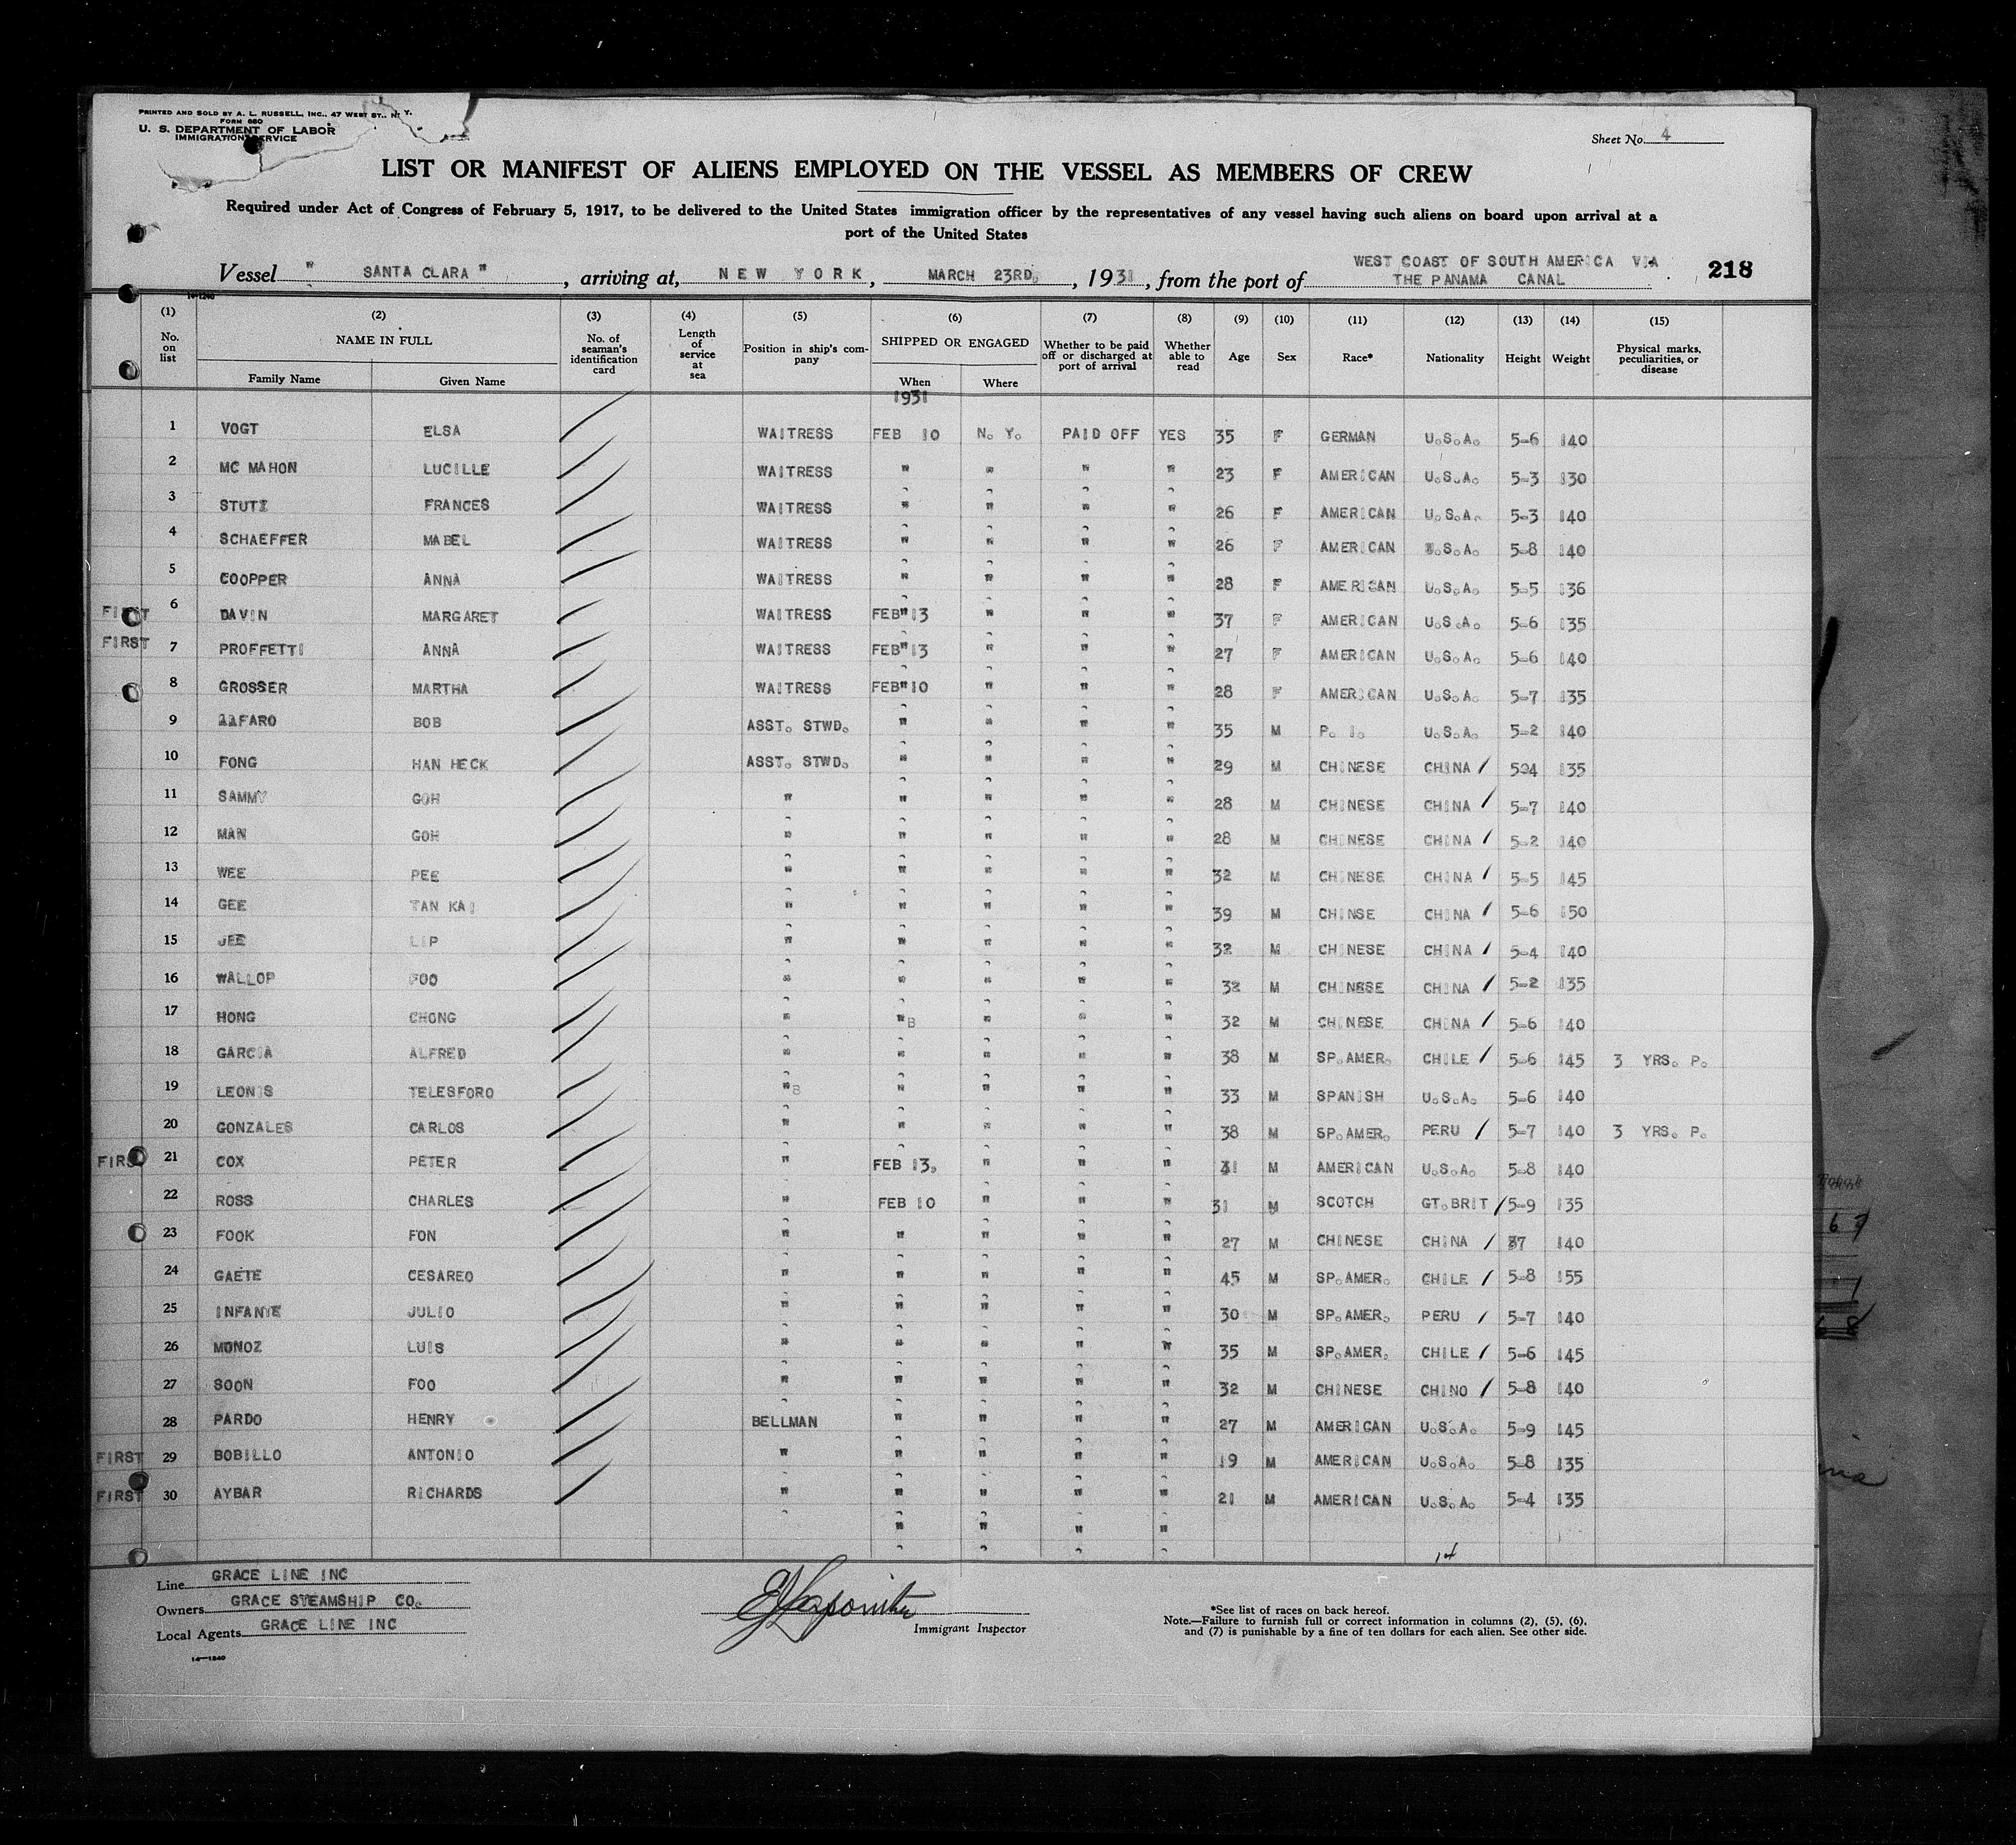 PRINTED AND SOLD BY A. L. RUSSELL, INC., 47 WEST ST., N. Y.
FORM 680
U. S. DEPARTMENT OF LABOR
IMMIGRATION SERVICE
Sheet No. 4
LIST OR MANIFEST OF ALIENS EMPLOYED ON THE VESSEL AS MEMBERS OF CREW
Required under Act of Congress of February 5, 1917, to be delivered to the United States immigration officer by the representatives of any vessel having such aliens on board upon arrival at a
port of the United States
Vessel " SANTA CLARA ", arriving at, NEW YORK, MARCH 23RD, 1931, from the port of WEST COAST OF SOUTH AMERICA VIA THE PANAMA CANAL
218
14-1240
(1) (2) (3) (4) (5) (6) (7) (8) (9) (10) (11) (12) (13) (14) (15)
No. on list NAME IN FULL Family Name Given Name No. of seaman's identification card Length of service at sea Position in ship's company SHIPPED OR ENGAGED When Where Whether to be paid off or discharged at port of arrival Whether able to read Age Sex Race* Nationality Height Weight Physical marks, peculiarities, or disease
1931
1 VOGT ELSA WAITRESS FEB 10 N. Y. PAID OFF YES 35 F GERMAN U.S.A. 5-6 140
2 MC MAHON LUCILLE WAITRESS " " " " 23 F AMERICAN U.S.A. 5-3 130
3 STUTZ FRANCES WAITRESS " " " " 26 F AMERICAN U.S.A. 5-3 140
4 SCHAEFFER MABEL WAITRESS " " " " 26 F AMERICAN U.S.A. 5-8 140
5 COOPPER ANNA WAITRESS " " " " 28 F AMERICAN U.S.A. 5-5 136
FIRST 6 DAVIN MARGARET WAITRESS FEB 13 " " " 37 F AMERICAN U.S.A. 5-6 135
FIRST 7 PROFFETTI ANNA WAITRESS FEB 13 " " " 27 F AMERICAN U.S.A. 5-6 140
8 GROSSER MARTHA WAITRESS FEB 10 " " " 28 F AMERICAN U.S.A. 5-7 135
9 BOB ASST. STWD. " " " " 35 M P. I. U.S.A. 5-2 140
10 FONG HAN HECK ASST. STWD. " " " " 29 M CHINESE CHINA / 5-4 135
11 SAMMY GOH " " " " " 28 M CHINESE CHINA / 5-7 140
12 MAN GOH " " " " " 28 M CHINESE CHINA / 5-2 140
13 WEE PEE " " " " " 32 M CHINESE CHINA / 5-5 145
14 GEE TAN KAI " " " " " 39 M CHINSE CHINA / 5-6 150
15 JEE LIP " " " " " 32 M CHINESE CHINA / 5-4 140
16 WALLOP FOO " " " " " 32 M CHINESE CHINA / 5-2 135
17 HONG CHONG " "B " " " 32 M CHINESE CHINA / 5-6 140
18 GARCIA ALFRED " " " " " 38 M SP.AMER. CHILE / 5-6 145 3 YRS. P.
19 LEONIS TELESFORO "B " " " " 33 M SPANISH U.S.A. 5-6 140
20 GONZALES CARLOS " " " " " 38 M SP.AMER. PERU / 5-7 140 3 YRS. P.
FIRST 21 COX PETER " FEB 13, " " " 31 M AMERICAN U.S.A. 5-8 140
22 ROSS CHARLES " FEB 10 " " " 31 M SCOTCH GT.BRIT / 5-9 135
23 FOOK FON " " " " " 27 M CHINESE CHINA / 140
24 GAETE CESAREO " " " " " 45 M SP.AMER. CHILE / 5-8 155
25 INFANTE JULIO " " " " " 30 M SP.AMER. PERU / 5-7 140
26 MONOZ LUIS " " " " " 35 M SP.AMER. CHILE / 5-6 145
27 SOON FOO " " " " " 32 M CHINESE CHINO / 5-8 140
28 PARDO HENRY BELLMAN " " " " 27 M AMERICAN U.S.A. 5-9 145
FIRST 29 BOBILLO ANTONIO " " " " " 19 M AMERICAN U.S.A. 5-8 135
FIRST 30 AYBAR RICHARDS " " " " " 21 M AMERICAN U.S.A. 5-4 135
" " " "
14
Line GRACE LINE INC
Owners GRACE STEAMSHIP CO.
Local Agents GRACE LINE INC
14-1240
Immigrant Inspector
*See list of races on back hereof.
Note.—Failure to furnish full or correct information in columns (2), (5), (6),
and (7) is punishable by a fine of ten dollars for each alien. See other side.